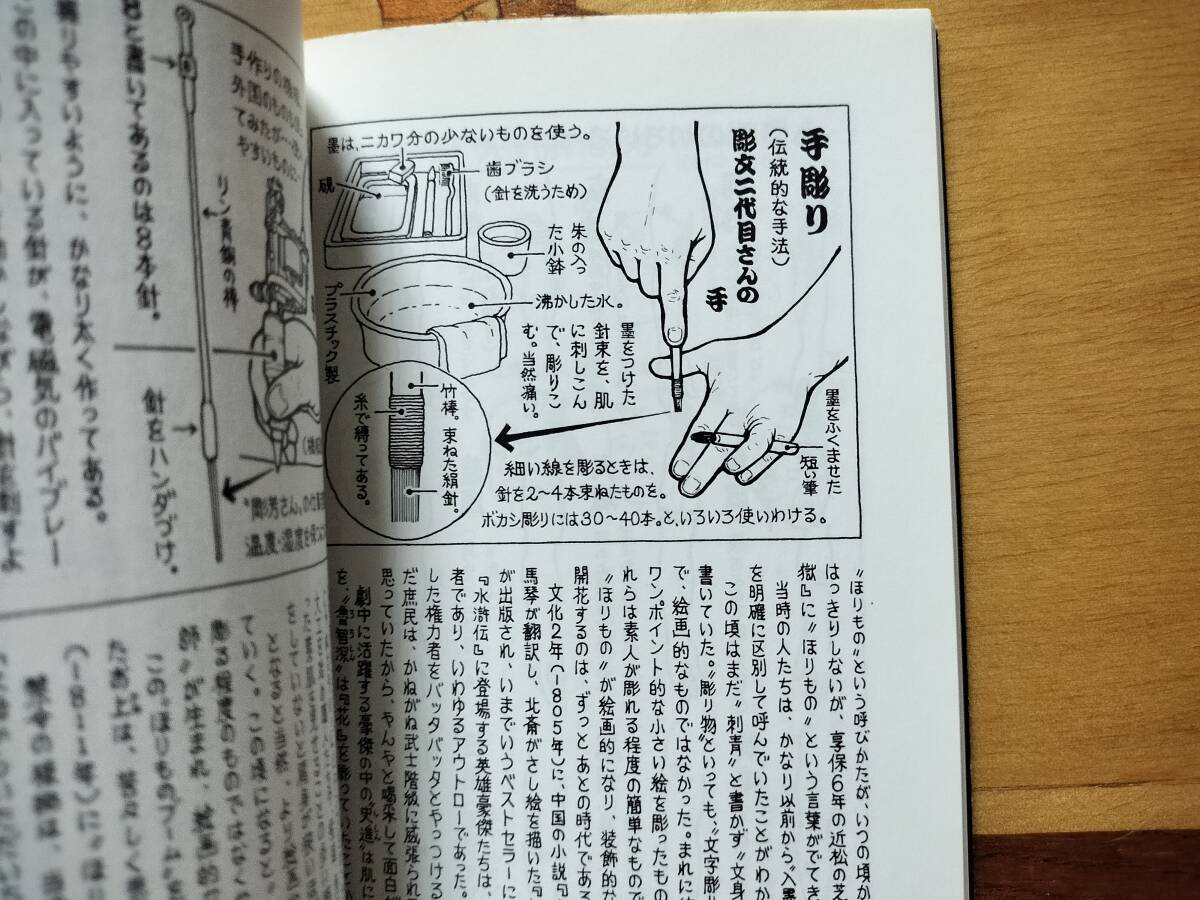 手彫り
(伝統的な手法)
彫文二代目さんの
手
墨は、ニカワ分の少ないものを使う。
硯
歯ブラシ
(針を洗うため)
朱の入っ
た小鉢
沸かした水。
プラスチック製
墨をつけた
針束を、肌
に刺しこん
で、彫りこ
む。当然痛い。
竹棒。束ねた絹針。
糸で縛ってある。
墨をふくませた
短い筆
細い線を彫るときは、
針を2〜4本束ねたものを。
ボカシ彫りには30〜40本。と、いろいろ使いわける。
“ほりもの”という呼びかたが、いつの頃か
はっきりしないが、享保6年の近松の芝
獄』に“ほりもの”という言葉がでてき
当時の人たちは、かなり以前から“入墨
を明確に区別して呼んでいたことがわか
この頃はまだ“刺青”と書かず“文身
書いていた。“彫り物”といっても、“文字彫り
で、絵画的なものではなかった。まれには
ワンポイント的な小さい絵を彫ったもの
れらは素人が彫れる程度の簡単なもので
“ほりもの”が絵画的になり、装飾的な
開花するのは、ずっとあとの時代である
文化2年(1805年)に、中国の小説『
馬琴が翻訳し、北斎がさし絵を描いた『
が出版され、いまでいうベストセラーに
『水滸伝』に登場する英雄豪傑たちは、
者であり、いわゆるアウトローであった。
した権力者をバッタバッタとやっつける
だ庶民は、かねがね武士階級に威張られ
思っていたから、やんやと喝采して面白
劇中に活躍する豪傑の中の“史進”は肌に
を、“魯智深”は『花』を彫っていたことか
手作りの
外国のものも
てみたが…
やすいものに
8と書いてあるのは8本針。
リン青銅の棒
針をハンダづけ。
握りやすいように、かなり太く作ってある。
この中に入っている針が、電磁気のバイブレー
温度・湿度を
ていく。この頃になると
彫る程度のものではなく
師”が生まれ、絵画的
このほりもののブームを
(1811年)に“ほり